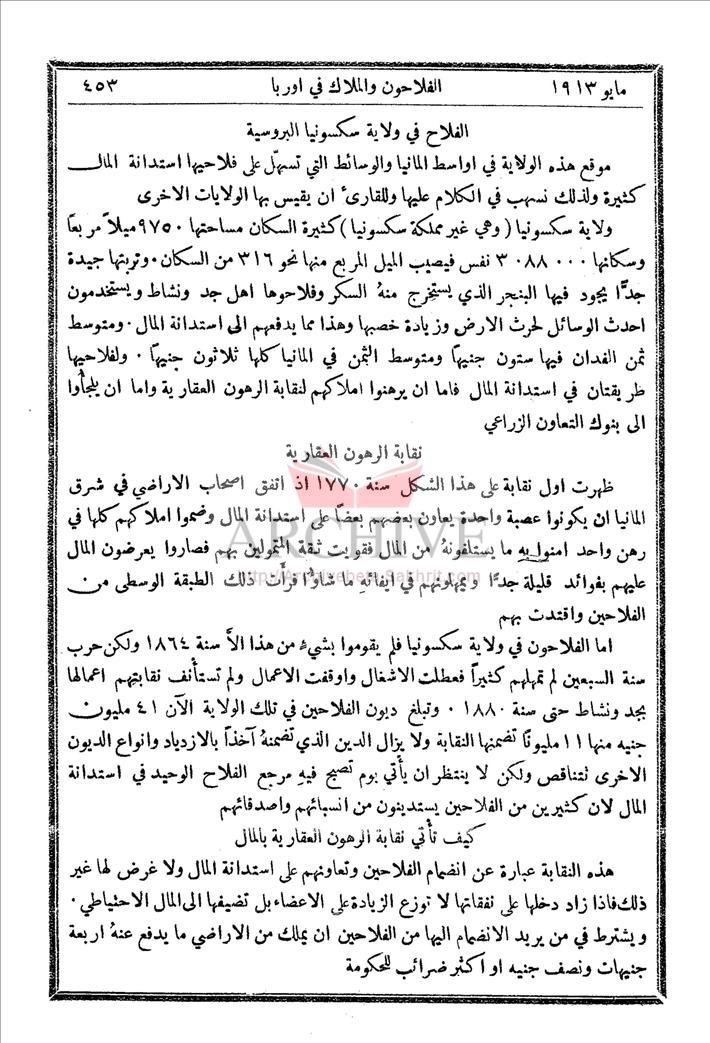 مايو ١٩١٣
الفلاحون والملاك في اوربا
٤٥٣
الفلاح في ولاية سكسونيا البروسية
موقع هذه الولاية في اواسط المانيا والوسائط التي تسهّل على فلاحيها استدانة المال
كثيرة ولذلك نسهب في الكلام عليها وللقارئ ان يقيس بها الولايات الاخرى
ولاية سكسونيا (وهي غير مملكة سكسونيا) كثيرة السكان مساحتها ٩٧٥٠ ميلاً مربعاً
وسكانها ٠٠٠ ٠٨٨ ٣ نفس فيصيب الميل المربع منها نحو ٣١٦ من السكان. وتربتها جيدة
جدًّا يجود فيها البنجر الذي يستخرج منهُ السكر وفلاحوها اهل جد ونشاط ويستخدمون
احدث الوسائل لحرث الارض وزيادة خصبها وهذا مما يدفعهم الى استدانة المال. ومتوسط
ثمن الفدان فيها ستون جنيهاً ومتوسط الثمن في المانيا كلها ثلاثون جنيهاً. ولفلاحيها
طريقتان في استدانة المال فاما ان يرهنوا املاكهم لنقابة الرهون العقارية واما ان يلجأوا
الى بنوك التعاون الزراعي
نقابة الرهون العقارية
ظهرت اول نقابة على هذا الشكل سنة ١٧٧٠ اذ اتفق اصحاب الاراضي في شرق
المانيا ان يكونوا عصبة واحدة يعاون بعضهم بعضاً على استدانة المال وضموا املاكهم كلها في
رهن واحد امنوا به ما يستلفونهُ من المال فقويت ثقة المتمولين بهم فصاروا يعرضون المال
عليهم بفوائد قليلة جدًّا ويمهلونهم في ايفائهِ ما شاؤا فرأَت ذلك الطبقة الوسطى من
الفلاحين واقتدت بهم
اما الفلاحون في ولاية سكسونيا فلم يقوموا بشيءٍ من هذا الأَ سنة ١٨٦٤ ولكن حرب
سنة السبعين لم تمهلهم كثيراً فعطلت الاشغال واوقفت الاعمال ولم تستأنف نقابتهم اعمالها
بجد ونشاط حتى سنة ١٨٨٠. وتبلغ ديون الفلاحين في تلك الولاية الآن ٤١ مليون
جنيه منها ١١ مليونًا تضمنها النقابة ولا يزال الدين الذي تضمنهُ آخذاً بالازدياد وانواع الديون
الاخرى تتناقص ولكن لا ينتظر ان يأتي يوم تصبح فيهِ مرجع الفلاح الوحيد في استدانة
المال لان كثيرين من الفلاحين يستدينون من انسبائهم واصدقائهم
كيف تأتي نقابة الرهون العقارية بالمال
هذه النقابة عبارة عن انضمام الفلاحين وتعاونهم على استدانة المال ولا غرض لها غير
ذلك فاذا زاد دخلها على نفقاتها لا توزع الزيادة على الاعضاء بل تضيفها الى المال الاحتياطي.
ويشترط في من يريد الانضمام اليها من الفلاحين ان يملك من الاراضي ما يدفع عنهُ اربعة
جنيهات ونصف جنيه او اكثر ضرائب للحكومة
ARCHIVE
http://Archivebeta.Sakhrit.com